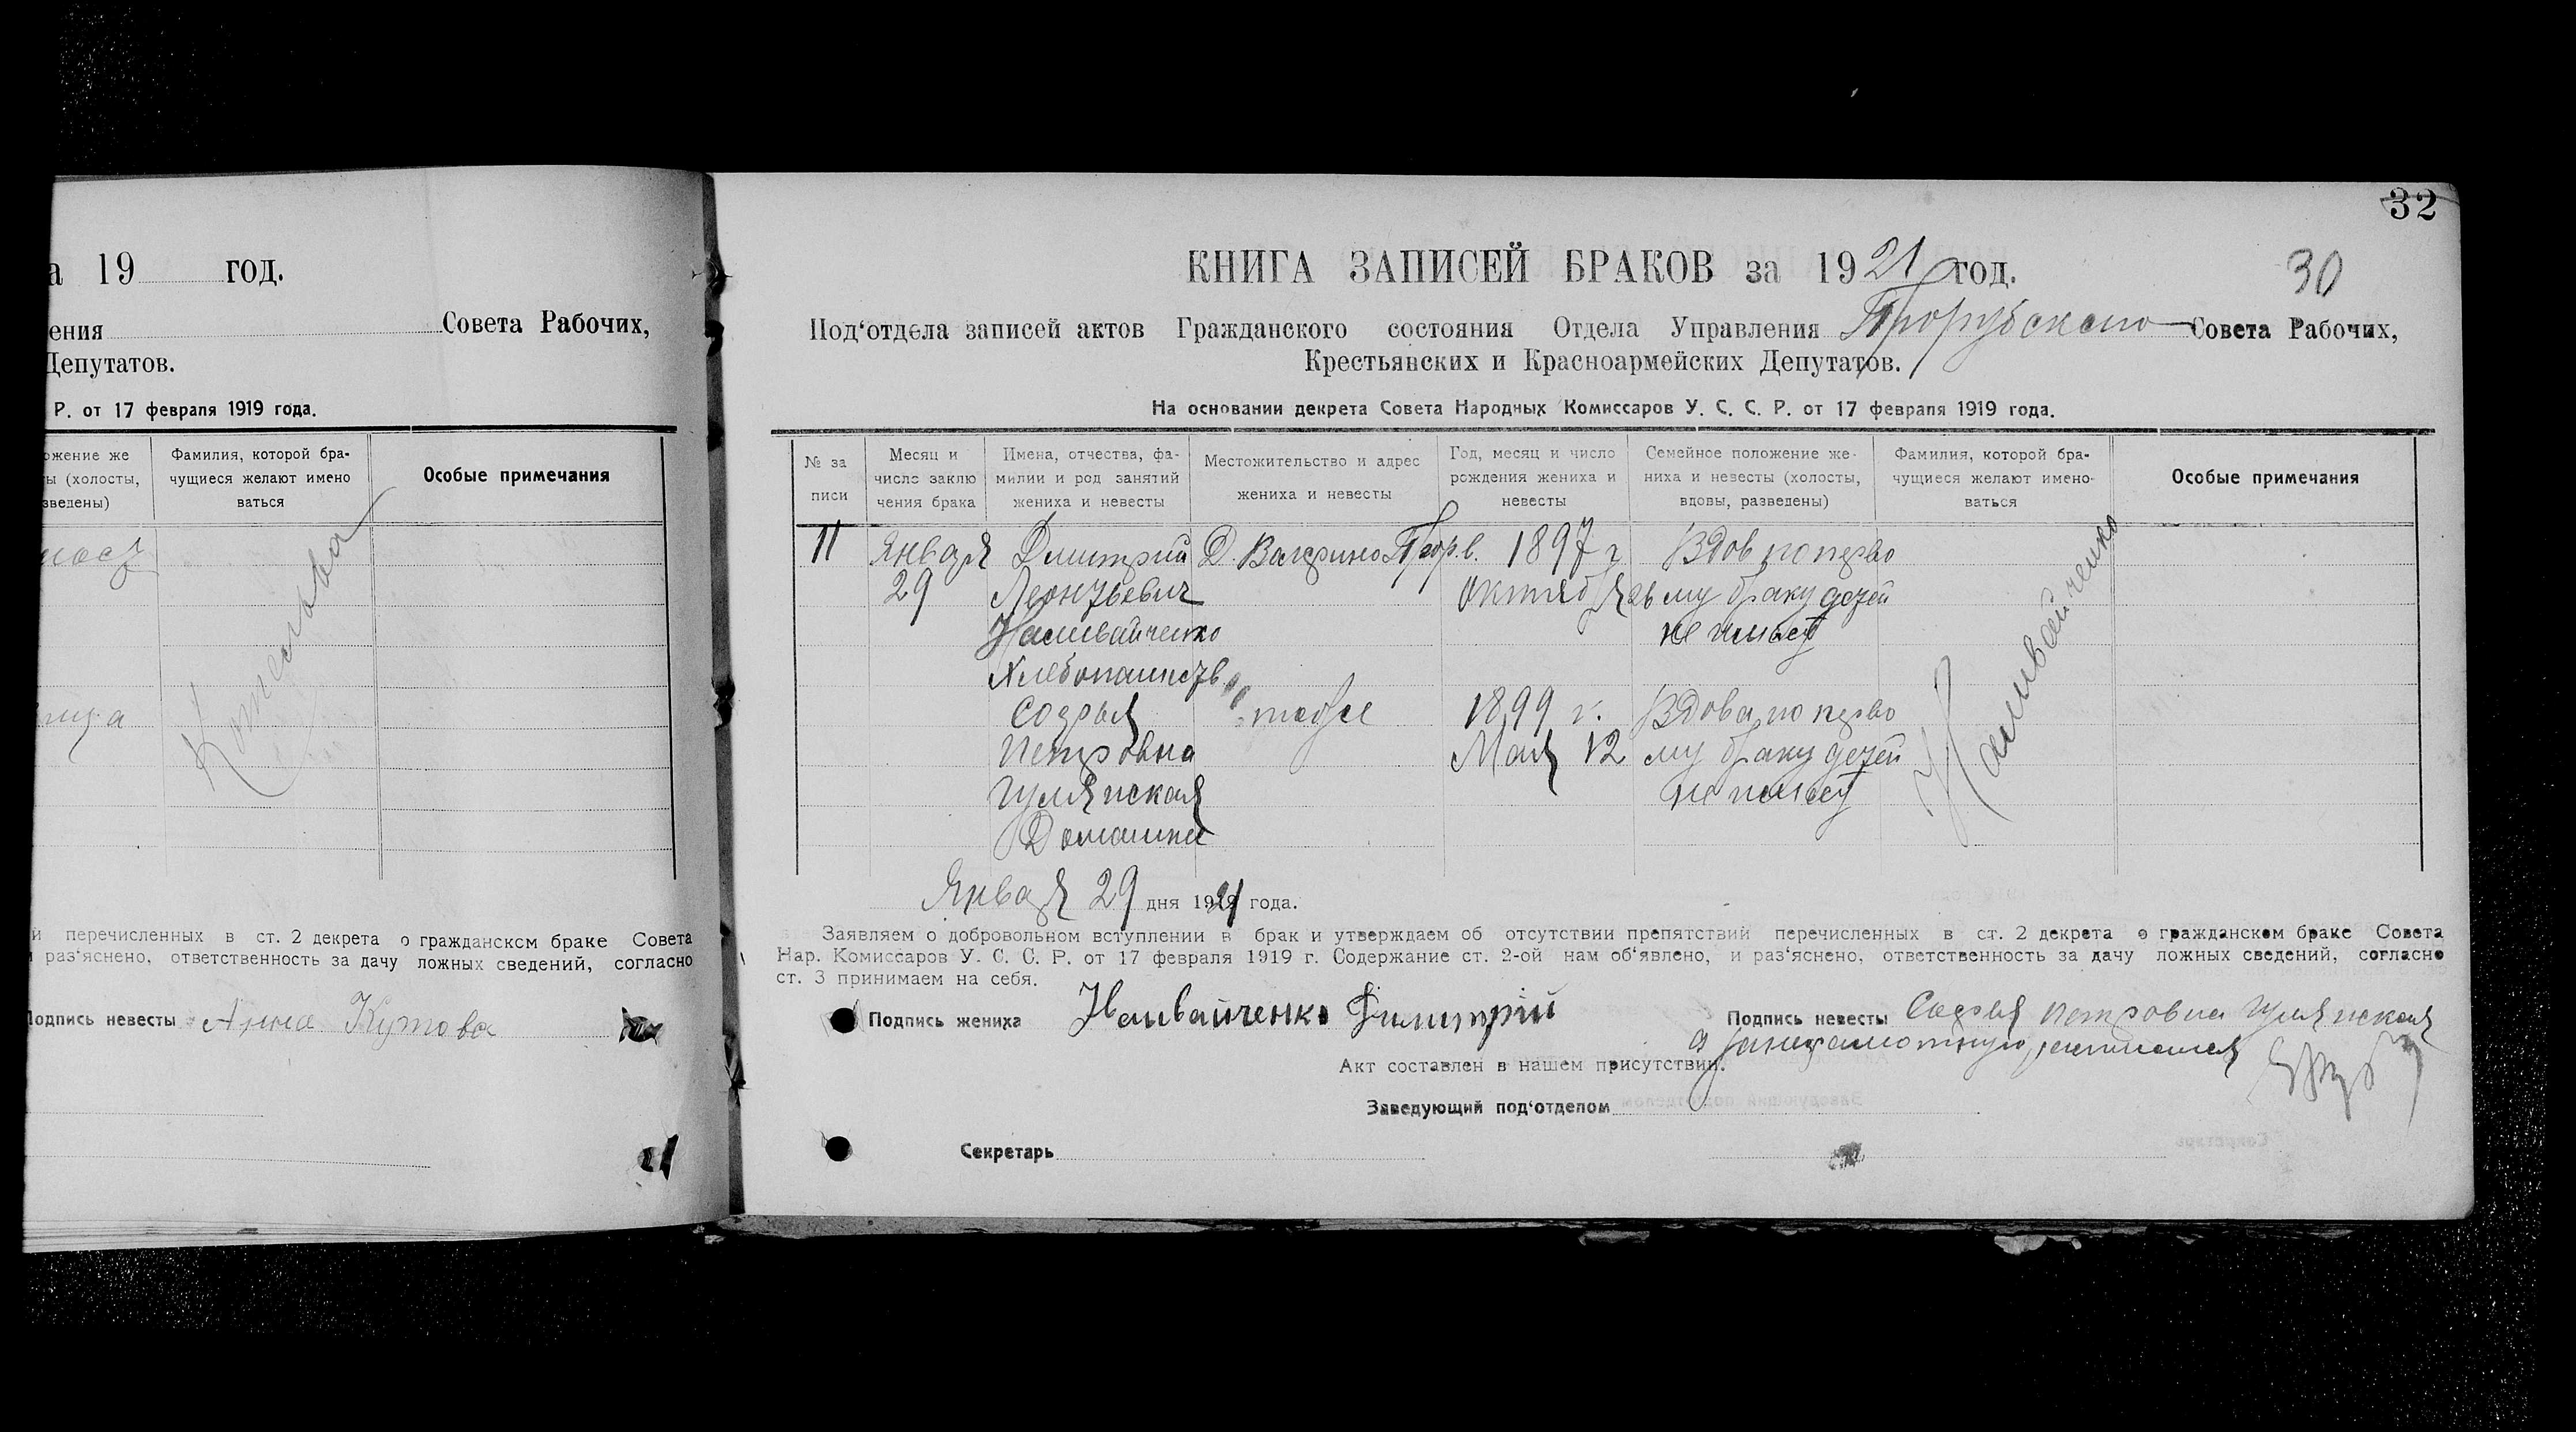 а 19 год.
ения Совета Рабочих,
Депутатов.
Р. от 17 февраля 1919 года.
ожение же
ы (холосты,
зведены)
Фамилия, которой бра-
чущиеся желают имено
ваться
Особые примечания
й перечисленных в ст. 2 декрета о гражданском браке Совета
раз'яснено, ответственность за дачу ложных сведений, согласно
Подпись невесты Анна Кутова
32
30
КНИГА ЗАПИСЕЙ БРАКОВ за 1921 год.
Под'отдела записей актов Гражданского состояния Отдела Управления Совета Рабочих,
Крестьянских и Красноармейских Депутатов.
На основании декрета Совета Народных Комиссаров У. С. С. Р. от 17 февраля 1919 года.
№ за
писи
Месяц и
число заклю
чения брака
Имена, отчества, фа-
милии и род занятий
жениха и невесты
Местожительство и адрес
жениха и невесты
Год, месяц и число
рождения жениха и
невесты
Семейное положение же-
ниха и невесты (холосты,
вдовы, разведены)
Фамилия, которой бра-
чущиеся желают имено-
ваться
Особые примечания
11 Января Дмитрий Д. 1897 г Вдов по перво
29 Леонтьевич Октября 26 му браку детей
Наливайченко не имеет
Хлебопашеств
Софья тоже 1899 г. Вдова по перво
Петровна Мая 12 му браку детей
Гулянская не имеет
Домашнее
Наливайченко
Января 29 дня 1921 года.
Заявляем о добровольном вступлении в брак и утверждаем об отсутствии препятствий перечисленных в ст. 2 декрета о гражданском браке Совета
Нар. Комиссаров У. С. С. Р. от 17 февраля 1919 г. Содержание ст. 2-ой нам об'явлено, и раз'яснено, ответственность за дачу ложных сведений, согласно
ст. 3 принимаем на себя.
Подпись жениха Наливайченко Димитрій
Подпись невесты Софья Петровна Гулянская
а за неграмотную расписался
Акт составлен в нашем присутствии.
Заведующий под'отделом
Секретарь